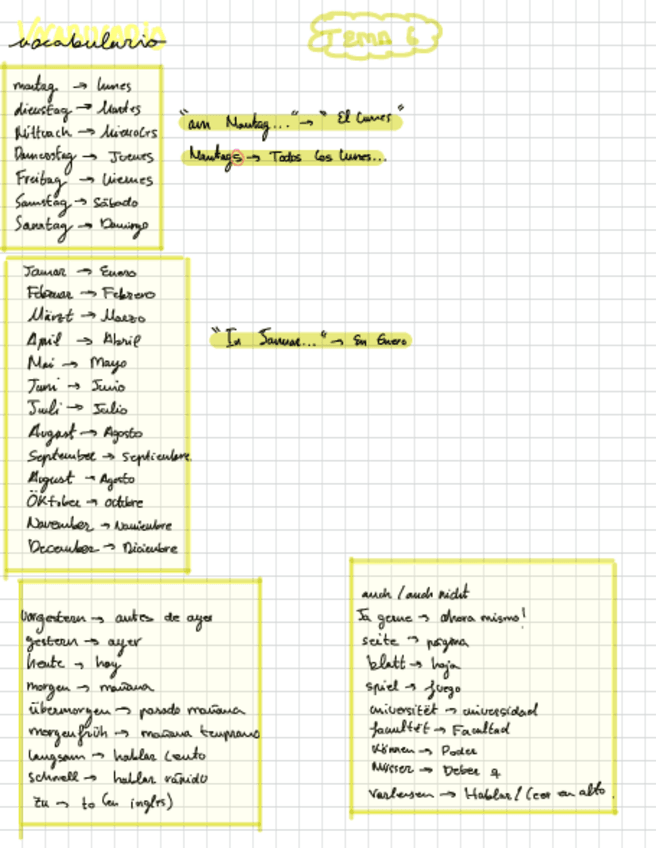 Vocabulario
vocabulario
Tema 6
montag → lunes
dienstag → Martes
Mittwoch → Miercoles
Donnerstag → Jueves
Freitag → Viernes
Samstag → Sábado
Sonntag → Domingo
"am Montag..." → "El lunes"
Montags → Todos los lunes...
Januar → Enero
Februar → Febrero
Märzt → Marzo
April → Abril
Mai → Mayo
Juni → Junio
Juli → Julio
August → Agosto
September → septiembre
August → Agosto
Öktober → octubre
November → Noviembre
December → Diciembre
"In Januar..." → En Enero
vorgestern → antes de ayer
gestern → ayer
heute → hoy
morgen → mañana
übermorgen → pasado mañana
morgenfrüh → mañana temprano
langsam → hablar lento
schnell → hablar rápido
zu → to (en inglés)
auch / auch nicht
Ja gerne → ahora mismo!
seite → página
blatt → hoja
spiel → juego
universität → universidad
facultät → Facultad
können → Poder
Müssen → Deber q
vorlesen → Hablar / leer en alto.